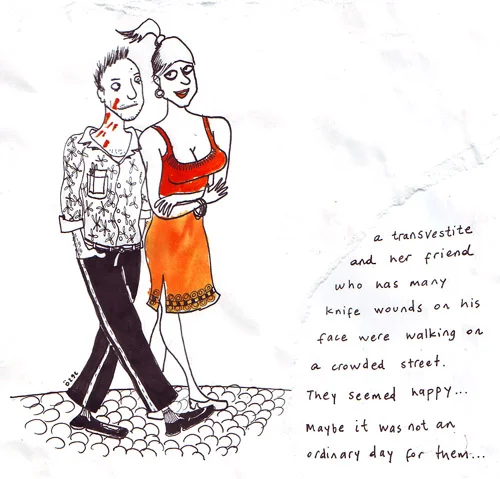 a transvestite
and her friend
who has many
knife wounds on his
face were walking on
a crowded street.
They seemed happy...
Maybe it was not an
ordinary day for them...